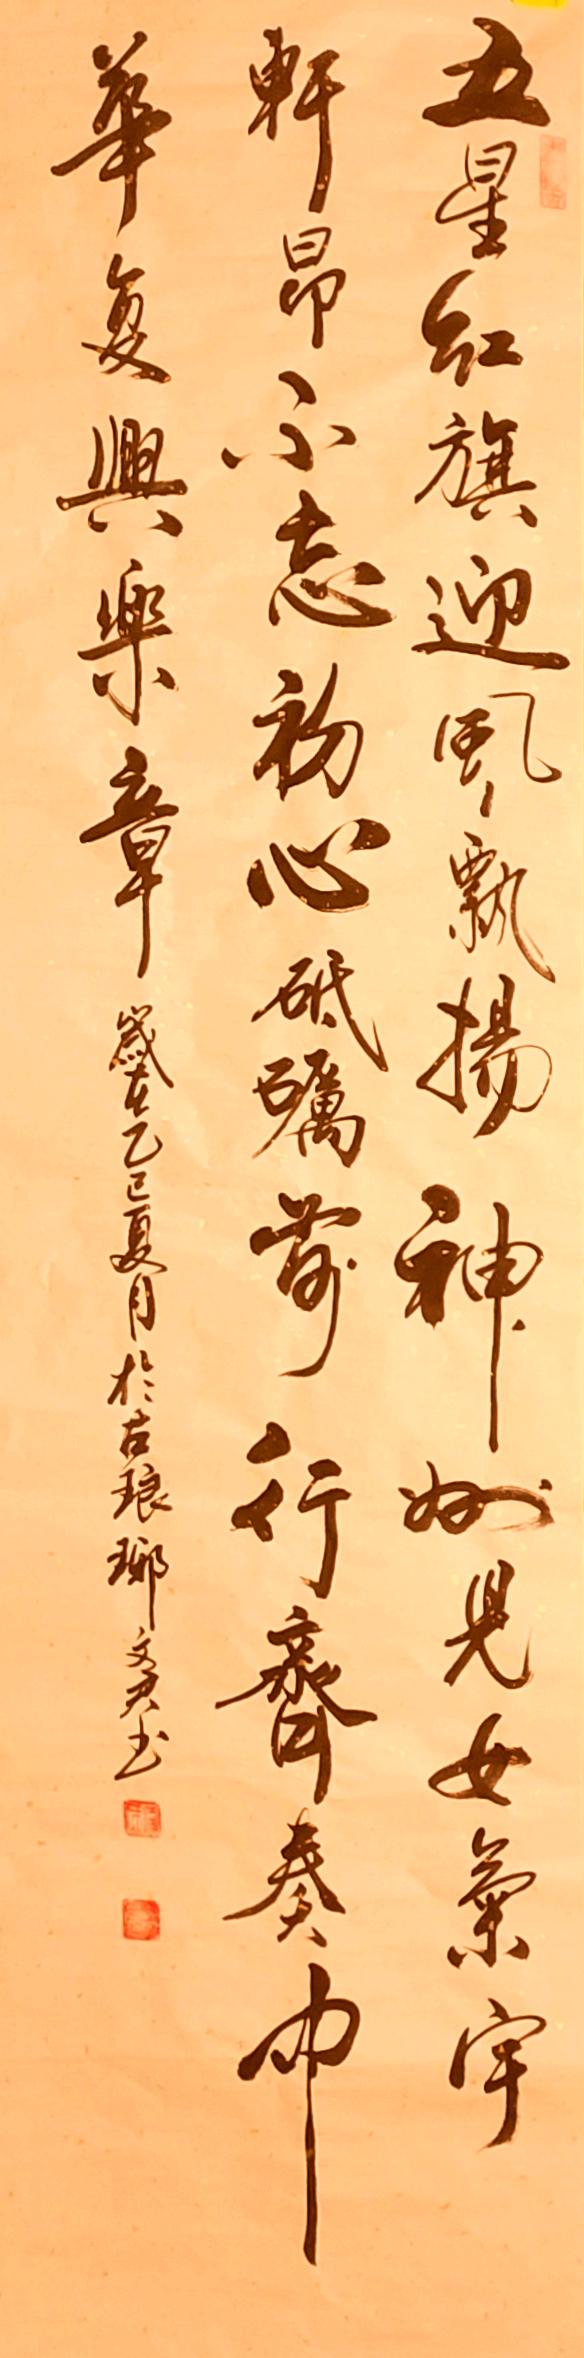 五星紅旗迎風飄揚神州兒女氣宇
軒昂不忘初心砥礪前行齊奏中
華复興樂章
歲在乙巳夏月於古琅琊文君书